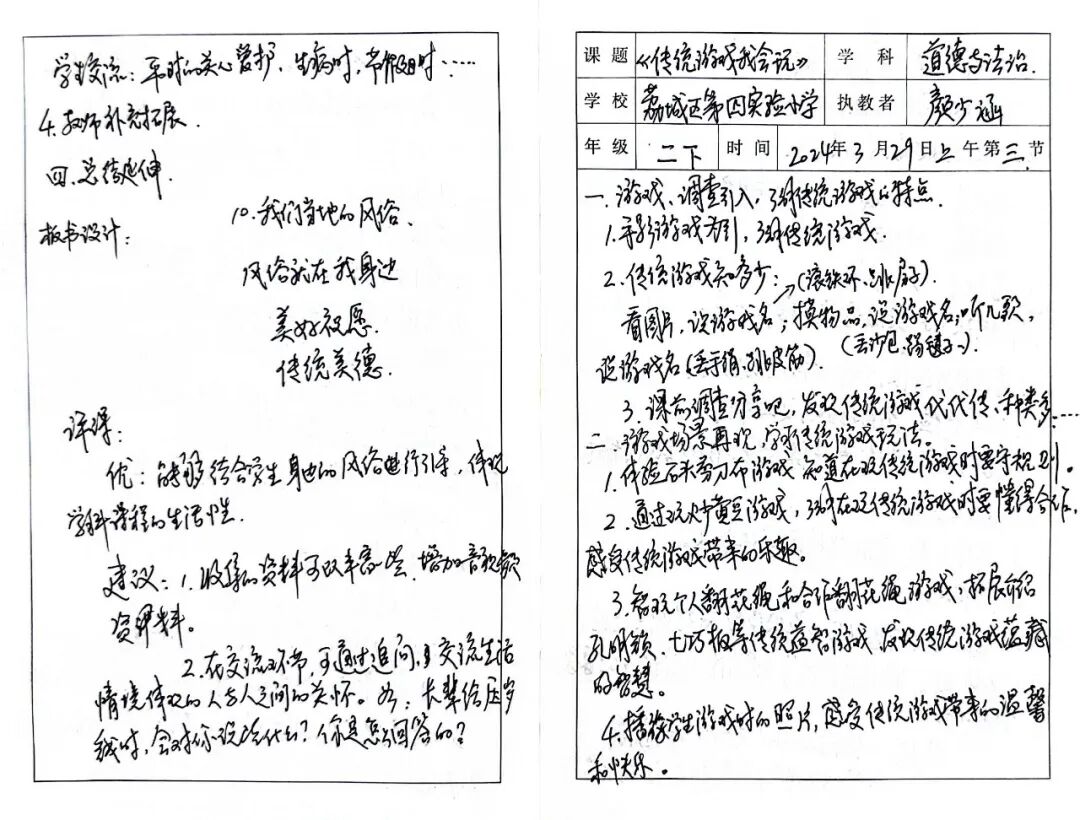 学生交流：平时的关心爱护、生病时，节假日时……
4.教师补充拓展.
四.总结延伸.
板书设计：
10.我们当地的风俗、
风俗就在我身边
美好祝愿.
传统美德.
评课：
优：能够结合学生身边的风俗进行引导，体现
学科课程的生活性.
建议：1.收集的资料可以丰富些、增加音视频
资料。
2.在交流环节，可通过追问，交流生活
情境体现的人与人之间的关怀。如：长辈给压岁
钱时，会对你说些什么？你是怎么回答的？
课题 《传统游戏我会玩》 学科 道德与法治.
学校 荔城区第四实验小学 执教者 颜少涵
年级 二下 时间 2024年3月29日上午第三节
一.游戏、调查引入，了解传统游戏的特点.
1.手影游戏导引，了解传统游戏.
2.传统游戏知多少：(滚铁环、跳房子).
看图片，说游戏名；摸物品，说游戏名；听儿歌，
(丢沙包、踢毽子).
说游戏名(丢手绢、跳皮筋).
3.课前调查分享吧，发现传统游戏代代传、种类多……
二.游戏场景再现，学习传统游戏玩法。
1.体验石头剪刀布游戏，知道在玩传统游戏时要守规则。
2.通过玩炒黄豆游戏，了解在玩传统游戏时要懂得合作，
感受传统游戏带来的乐趣。
3.玩个人翻花绳和合作翻花绳游戏，拓展介绍
孔明锁、七巧板等传统益智游戏，发现传统游戏蕴藏
的智慧。
4.播放学生游戏时的照片，感受传统游戏带来的温馨
和快乐。